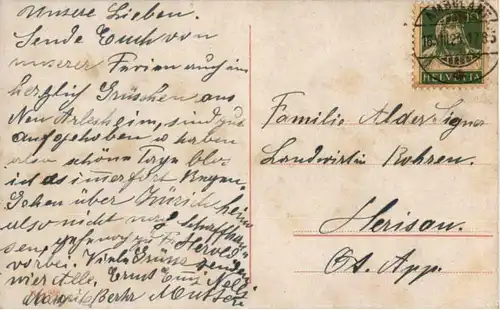 Unsere Lieben.
Sende Euch von
unserer Ferien auch im
herzlich Grüschen aus
Neu Arlesheim, sind gut
aufgehoben u haben
also schöne Tage blos
ist es immerfort Regen
Gehen über Zürich heim
also nicht nach Schaffhau
sen
vorbei. Viele Grüsse senden
vier Alle. Ernst Emy Nelly
Berta Mutter
HELVETIA
Familie Alder Signer
Landwirt in Rohren.
Herisau.
Ct. App.